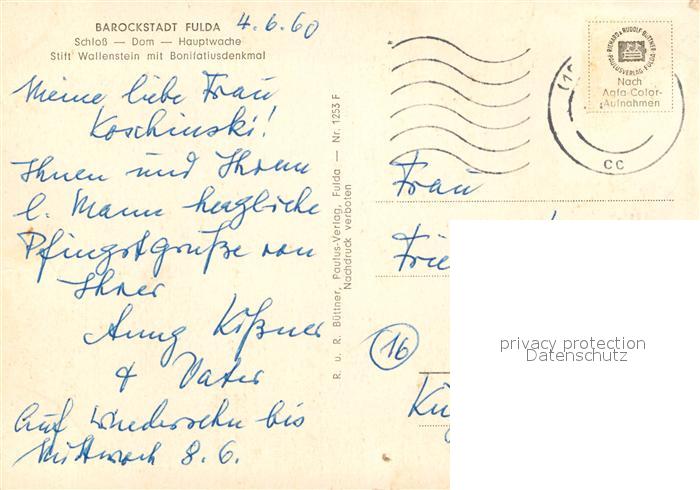 BAROCKSTADT FULDA
Schloß — Dom — Hauptwache
Stift Wallenstein mit Bonifatiusdenkmal
4.6.60
Meine liebe Frau
Koschinski!
Ihnen und Ihrem
l. Mann herzliche
Pfingstgrüße von
Ihrer
Anny Kißner
& Vater
Auf Wiedersehn bis
Mittwoch 8.6.
R. u. R. Büttner, Paulus-Verlag, Fulda — Nr. 1253 F
Nachdruck verboten
RICHARD & RUDOLF BÜTTNER
PAULUSVERLAG · FULDA
Nach
Agfa-Color-
Aufnahmen
cc
Frau
Frie
16
privacy protection
Datenschutz